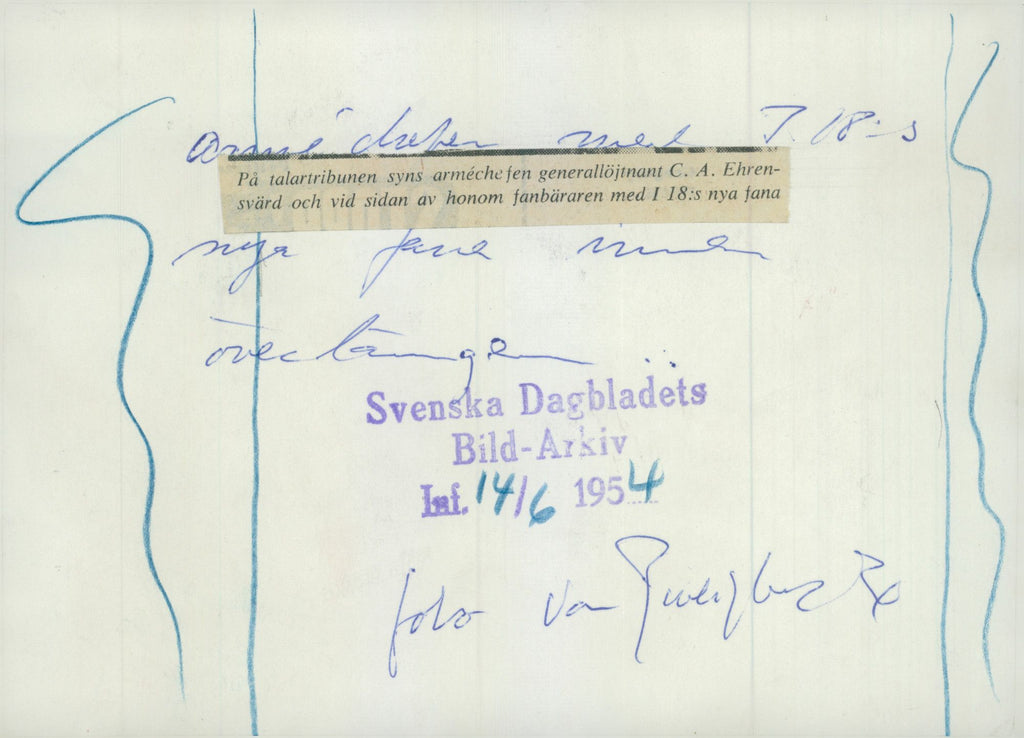 arméchefen med I 18:s
På talartribunen syns arméchefen generallöjtnant C. A. Ehren-
svärd och vid sidan av honom fanbäraren med I 18:s nya fana
nya fana innan
överlämnen
Svenska Dagbladets
Bild-Arkiv
Inf. 14/6 1954
foto von